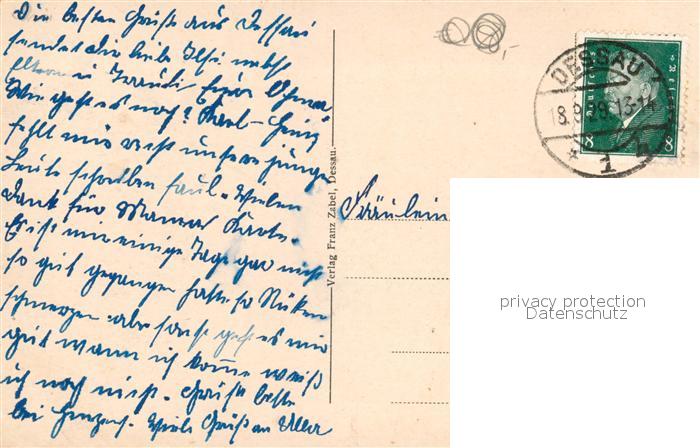 Die besten Grüße aus Dessau
sendet dir liebe Ilse nebst
Eltern u Traudi Eure Oma
Wie geht es noch? Karl-Heinz
fehlt mir recht unsere junge
Leute schreiben faul. Vielen
Dank für Mamas Karte.
Es ist mir einige Tage gar nicht
so gut gegangen hatte so Rücken
schmerzen aber sonst geht es mir
gut wann ich komme weiß
ich noch nicht. Grüße bitte
bei Viele Grüße an Alle
Verlag Franz Zabel, Dessau.
Fräulein
DESSAU
13-14
* 1
8 8
privacy protection
Datenschutz